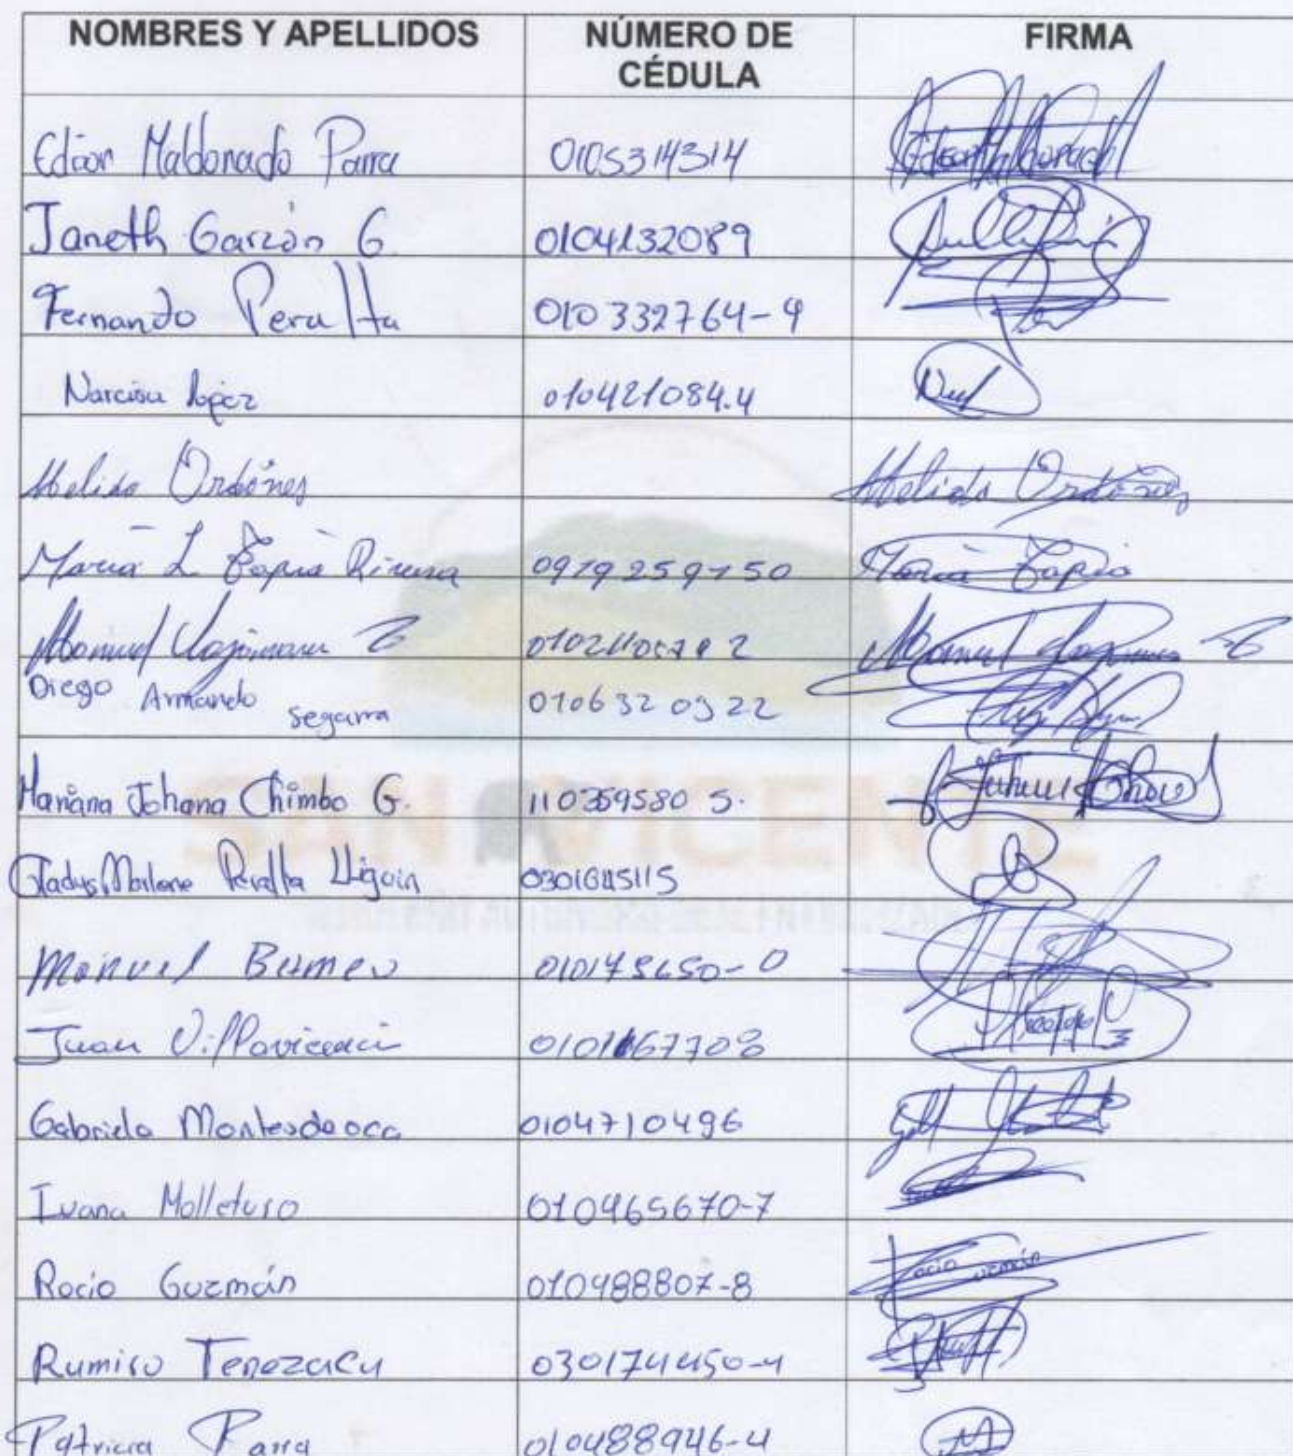 NOMBRES Y APELLIDOS NÚMERO DE CÉDULA FIRMA
Maldonado Parra 0105314314
Janeth Garzón G. 0104132089
Fernando Peralta 010332764-9
Narcisa lopez 010421084.4
Melida Ordóñes Melida Ordóñes
Maria L Tapia 0919259150 Maria Tapia
Manuel Manuel
Diego Armando Segarra 0106320322
Mariana Johana Chimbo G. 110359580 5.
Gladys Marlene Peralta 0301645115
Manuel
Juan Villavicencio
Gabriela Montesdeoca 0104710496
Ivana Molleturo 010465670-7
Rocio Guzmán 010488807-8 Rocio Guzmán
Rumiro Tenezacu 030174450-4
Patricia Parra 010488946-4
SAN VICENTE